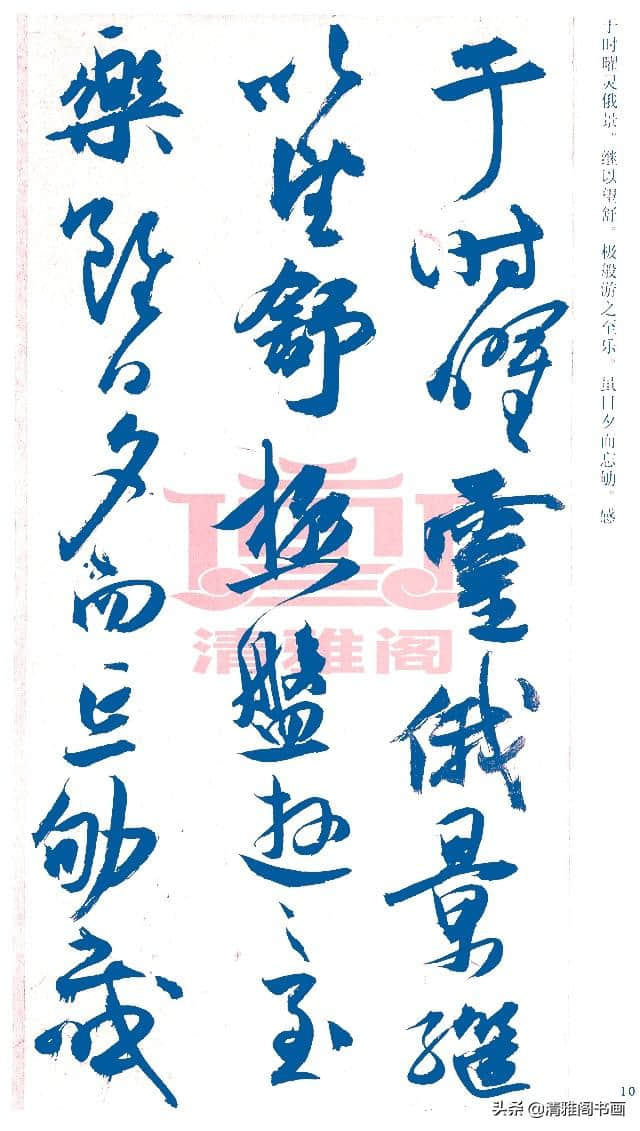 于时曜灵俄景。继以望舒。极般游之至乐。虽日夕而忘劬。感
于時曜靈俄景繼
以望舒極盤遊之至
樂雖日夕而忘劬感
清雅阁
10
头条@清雅阁书画